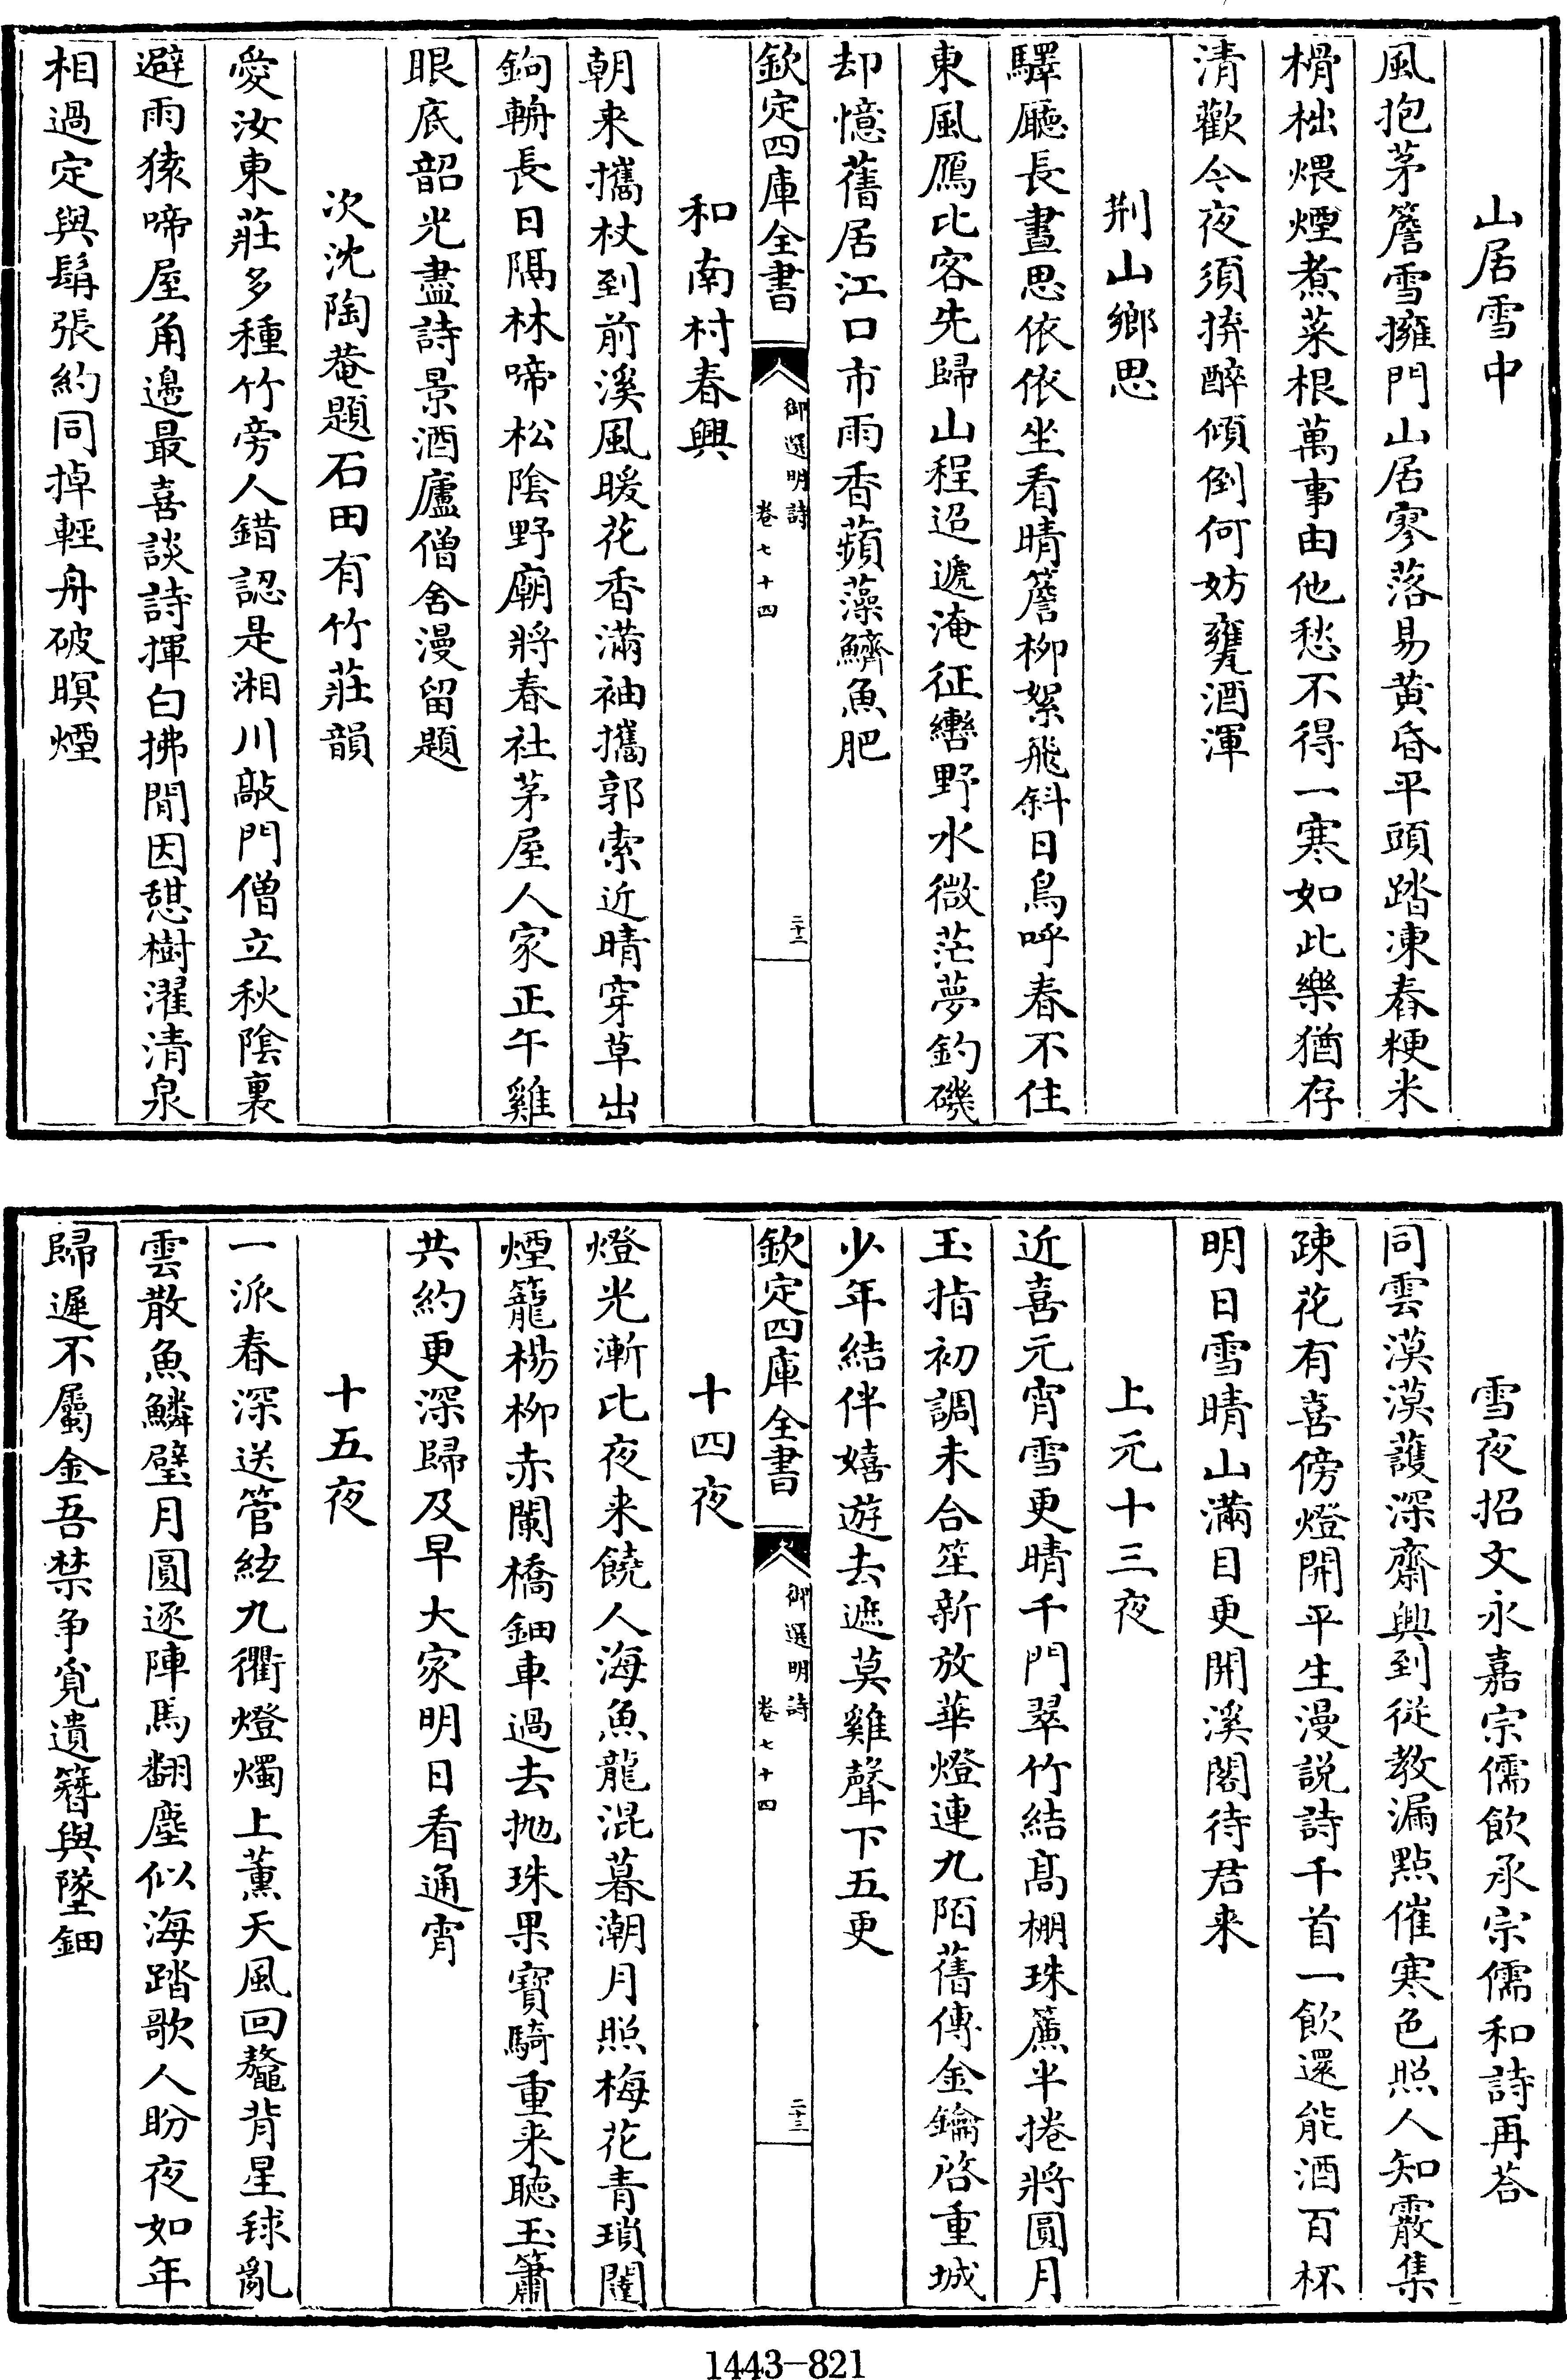 山居雪中
風抱茅簷雪擁門山居寥落易黄昏平頭踏凍舂粳米
榾柮煨煙煮菜根萬事由他愁不得一寒如此樂猶存
清歡今夜須拚醉傾倒何妨甕酒渾
荆山鄉思
驛廳長晝思依依坐看晴簷柳絮飛斜日鳥呼春不住
東風鴈比客先歸山程迢遞淹征轡野水微茫夢釣磯
却憶舊居江口市雨香蘋藻鱭魚肥
欽定四庫全書
御選明詩
卷七十四
二十二
和南村春興
朝来攜杖到前溪風暖花香滿袖攜郭索近晴穿草出
鉤輈長日隔林啼松陰野廟將春社茅屋人家正午雞
眼底韶光盡詩景酒廬僧舍漫留題
次沈陶菴題石田有竹莊韻
愛汝東莊多種竹旁人錯認是湘川敲門僧立秋陰裏
避雨猿啼屋角邊最喜談詩揮白拂閒因憇樹濯清泉
相過定與髯張約同掉輕舟破暝煙
雪夜招文永嘉宗儒飲承宗儒和詩再荅
同雲漠漠護深齋興到從教漏點催寒色照人知霰集
疎花有喜傍燈開平生漫説詩千首一飲還能酒百杯
明日雪晴山滿目更開溪閣待君来
上元十三夜
近喜元宵雪更晴千門翠竹結髙棚珠簾半捲將圓月
玉指初調未合笙新放華燈連九陌舊傳金鑰啓重城
少年結伴嬉遊去遮莫雞聲下五更
欽定四庫全書
御選明詩
卷七十四
二十三
十四夜
燈光漸比夜来饒人海魚龍混暮潮月照梅花青瑣闥
煙籠楊柳赤闌橋鈿車過去抛珠果寶騎重来聽玉簫
共約更深歸及早大家明日看通宵
十五夜
一派春深送管絃九衢燈燭上薰天風回鼇背星毬亂
雲散魚鱗璧月圓逐陣馬翻塵似海踏歌人盼夜如年
歸遲不屬金吾禁争覓遺簪與墜鈿
1443-821